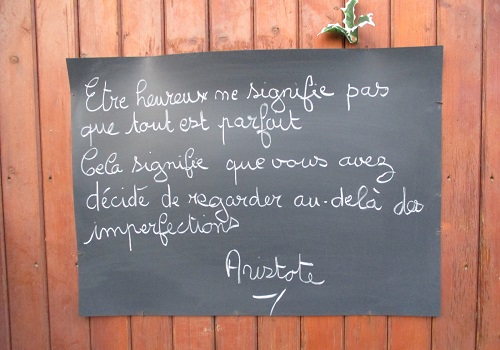 Etre heureux ne signifie pas
que tout est parfait
Cela signifie que vous avez
décidé de regarder au-delà des
imperfections
Aristote